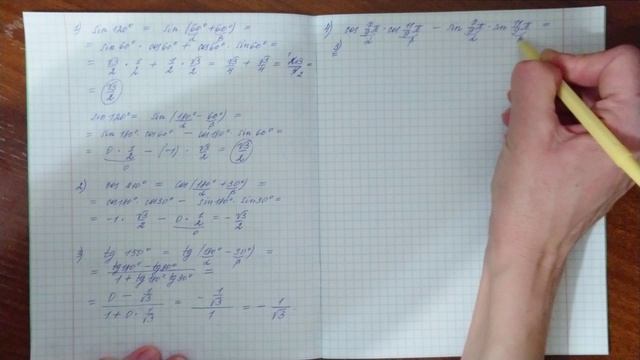 1) sin 120° = sin (60°+60°) =
α β
= sin 60° · cos 60° + cos 60° · sin 60° =
= √3/2 · 1/2 + 1/2 · √3/2 = √3/4 + √3/4 = 2√3/4 =
= √3/2
sin 120° = sin (180° − 60°) =
α β
= sin 180° · cos 60° − cos 180° · sin 60° =
= 0 · 1/2 − (−1) · √3/2 = √3/2
0
2) cos 210° = cos (180° + 30°) =
α β
= cos 180° · cos 30° − sin 180° · sin 30° =
= −1 · √3/2 − 0 · 1/2 = − √3/2
0
3) tg 150° = tg (180° − 30°) =
α β
= (tg 180° − tg 30°)/(1 + tg 180° tg 30°) =
= (0 − 1/√3)/(1 + 0 · 1/√3) = (− 1/√3)/1 = − 1/√3
4)